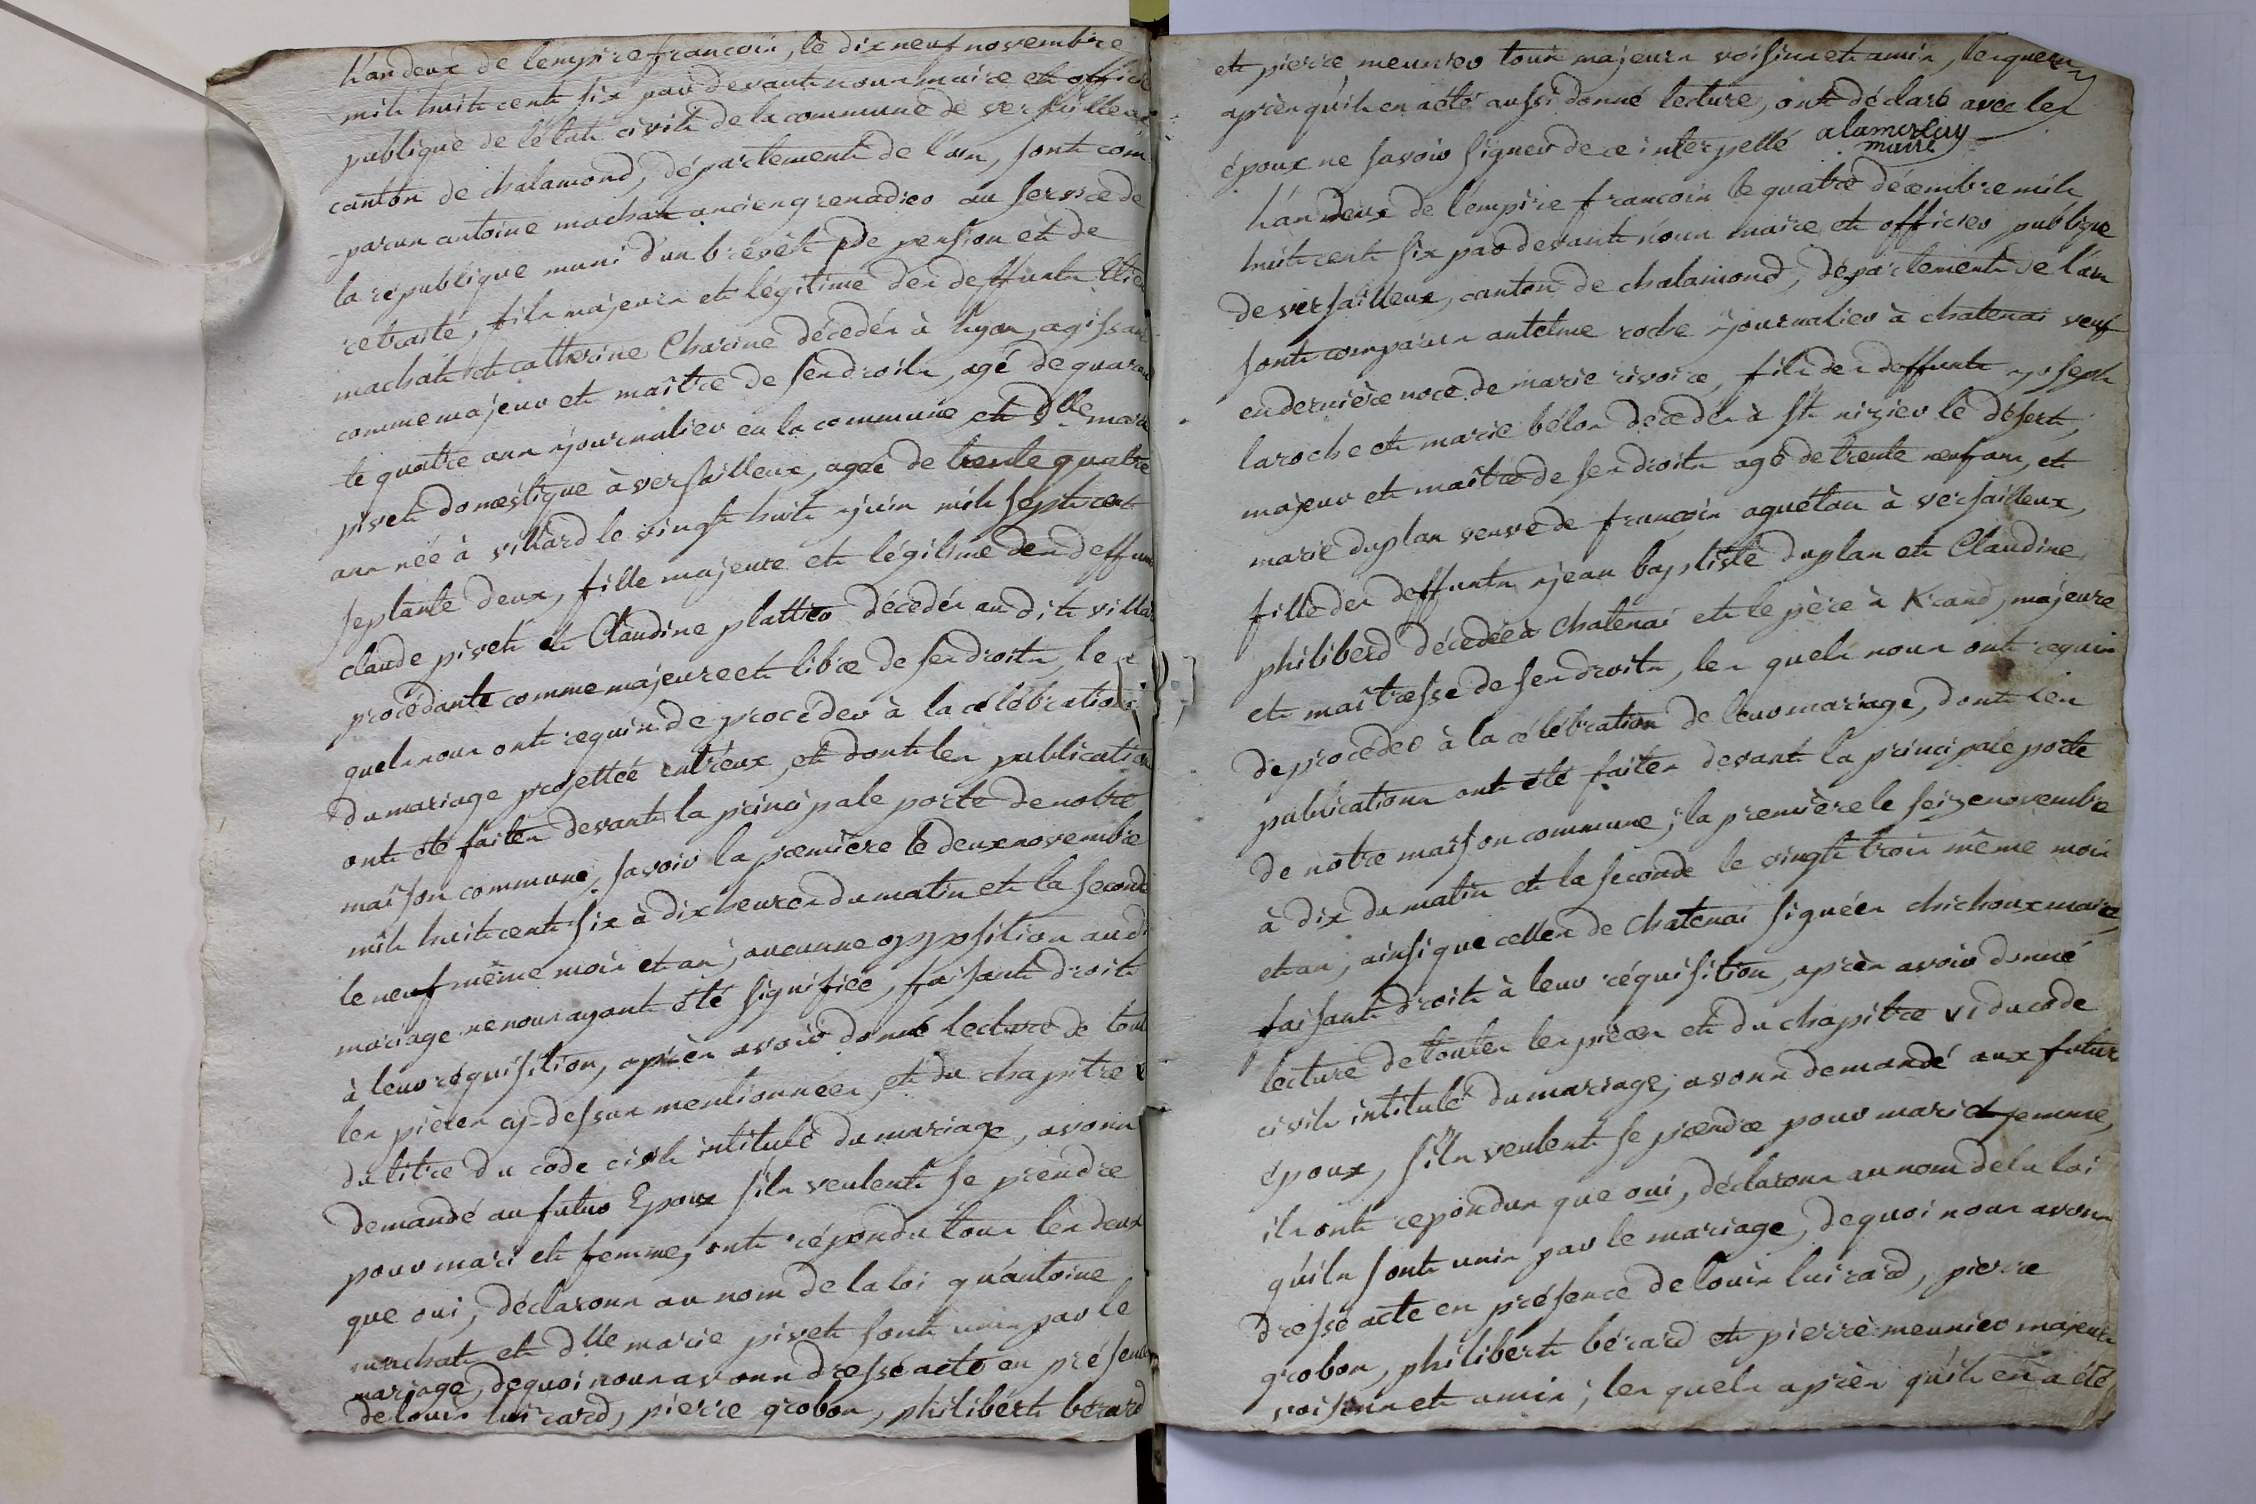 L'an deux de l'empire francois, le dix neuf novembre
mil huit cent six par devant nous maire et officie
publique de l'état civil de la commune de versailleux
canton de chalamond, département de l'ain, sont com
parus antoine machat ancien grenadier au service de
la république muni d'un brévèt de pension et de
retraite, fils majeurs et légitime des deffunts Etien
machat et catherine Charine décédés à lyon, agissant
comme majeur et maître de ses droits, agé de quaran
te quatre ans journalier en la commune et dlle marie
pivet domestique à versailleux, agée de trente quatre
ans née à villard le vingt huit juin mil sept cent
septante deux, fille majeure et légitime des deffunts
claude pivet et Claudine plattier décédés au dit villar
procédante comme majeure et libre de ses droits, les
quels nous ont requis de procéder à la célébration
du mariage projettée entr'eux, et dont les publication
ont été faites devant la principale porte de notre
maison commune, savoir la première le deux novembre
mil huit cent six à dix heures du matin et la seconde
le neuf même mois et an, aucunne opposition au dt
mariage ne nous ayant été signifiée, faisant droit
à leur réquisition, après avoir donné lecture de tout
les pièces cy-dessus mentionnées, et du chapitre v
du titre du code civil intitulé du mariage, avons
demandé au futur Epoux s'ils veulent se prendre
pour mari et femme, ont répondu tous les deux
que oui, déclarons au nom de la loi qu'antoine
machat et dlle marie pivet sont unis par le
mariage, de quoi nous avons dressé acte en présence
de louis luirard, pierre grobon, philibért bérard
et pierre meunier tous majeurs voisins et amis, lesquels
après qu'il en a été aussi donné lecture, ont déclaré avec les
époux ne savoir signer de ce interpellé alamercery
maire
L'an deux de l'empire francois le quatre décembre mil
huit cent six par devant nous maire et officier publique
de versailleux, canton de chalamond, département de l'ain
sont comparus antelme roche journalier à chatenai veuf
en dernière noce de marie rivoire, fils des deffunts joseph
laroche et marie bélon décédés à st nizier le désert,
majeur et maître de ses droits agé de trente neuf ans, et
marie duplan veuve de francois aguétan à versailleux,
fille des deffunts jean baptiste duplan et Claudine
philiberd décédée à chatenai et le père à Krand, majeure
et maîtresse de ses droits, les quels nous ont requis
de procéder à la célébration de leur mariage, dont les
publications ont été faites devant la principale porte
de nôtre maison commune; la première le seize novembre
à dix du matin et la seconde le vingt trois même mois
et an, ainsi que celles de chatenai signées chichoux maire
faisant droit à leur réquisition, après avoir donné
lecture de toutes les pièces et du chapitre vi du code
civil intitulé du mariage, avons demandé aux futur
époux, s'ils veulent se prendre pour mari et femme,
ils ont repondus que oui, déclarons au nom de la loi
qu'ils sont unis par le mariage, de quoi nous avons
dressé acte en présence de louis luirard, pierre
grobon, philibert bérard et pierre meunier majeurs
voisins et amis; les quels après qu'il en a été